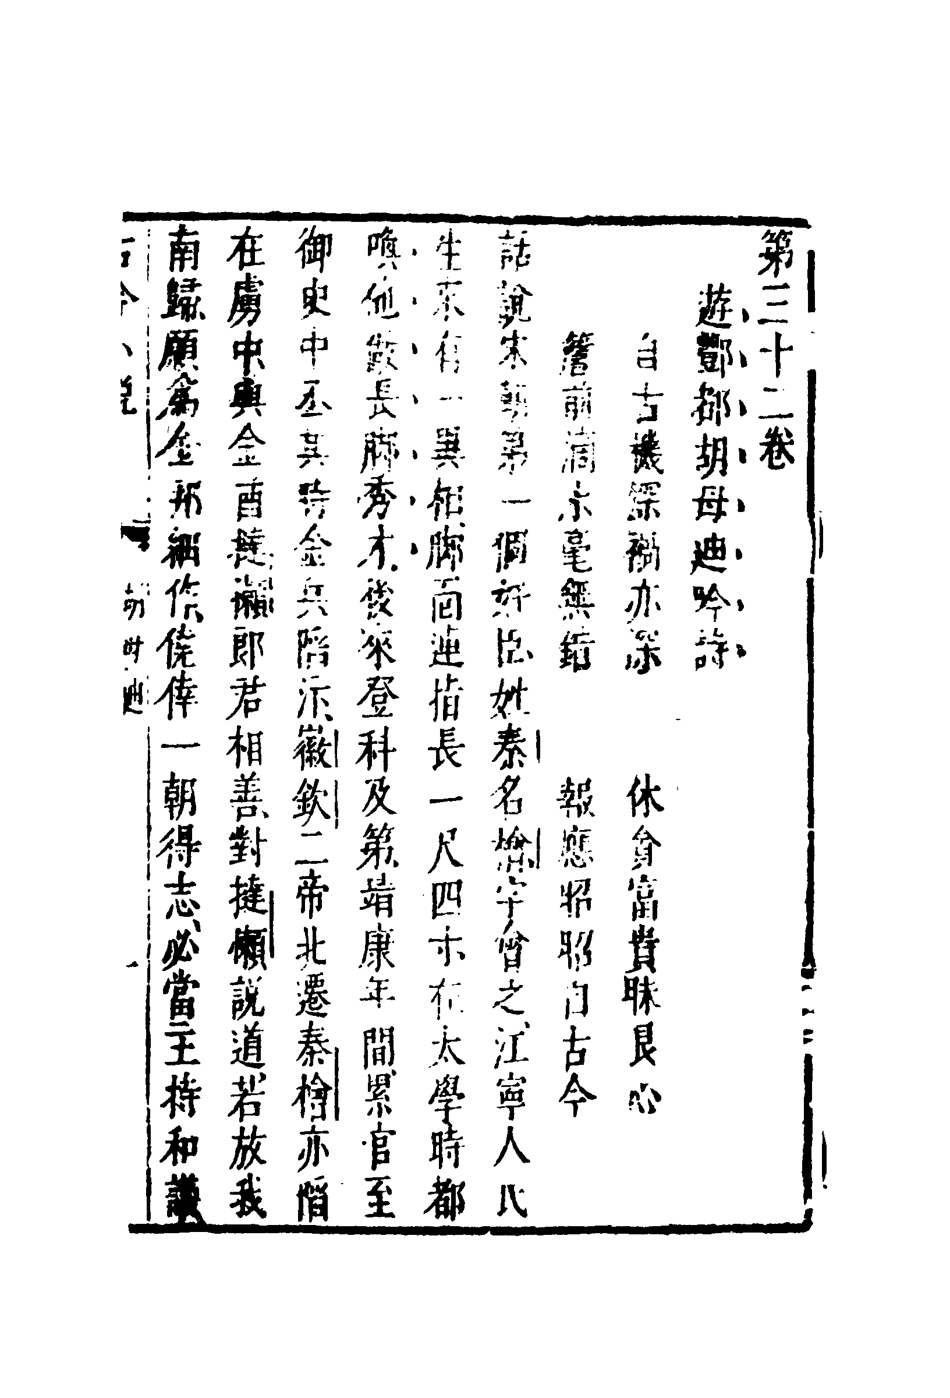 第三十二卷
遊酆都胡母迪吟詩
自古機深禍亦深　休貪富貴昧良心
簷前滴水毫無錯　報應昭昭自古今
話說宋朝第一個奸臣姓秦名檜字會之江寧人氏
生來有一異相脚面連指長一尺四寸在太學時都
喚他做長脚秀才後來登科及第靖康年間累官至
御史中丞其時金兵陷汴徽欽二帝北遷秦檜亦陷
在虜中與金酋撻懶郎君相善對撻懶說道若放我
南歸願爲金邦細作僥倖一朝得志必當主持和議
古今小說　胡母迪　一